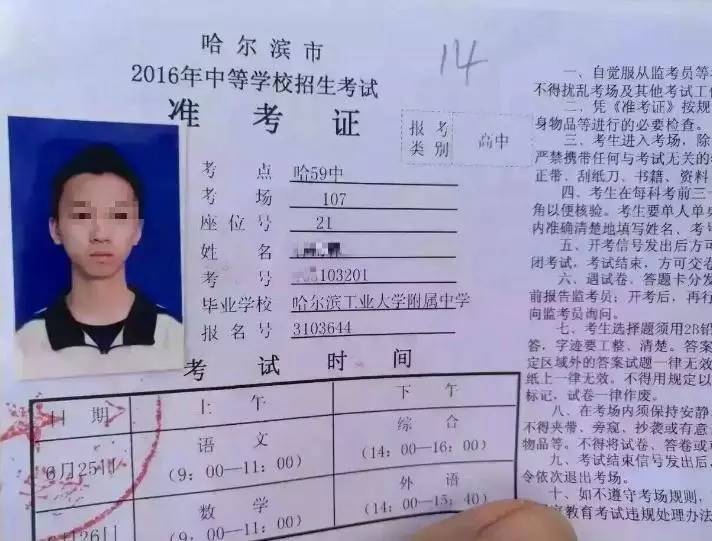 哈尔滨市
2016年中等学校招生考试
准考证
14
报考类别 高中
考点 哈59中
考场 107
座位号 21
姓名
考号 103201
毕业学校 哈尔滨工业大学附属中学
报名号 3103644
考试时间
日期 上午 下午
6月25日 语文 (9:00—11:00) 综合 (14:00—16:00)
月26日 数学 (9:00—11:00) 外语 (14:00—15:40)
一、自觉服从监考员等
不得扰乱考场及其他考试工
二、凭《准考证》按规
身物品等进行的必要检查。
三、考生进入考场,除
严禁携带任何与考试无关的
正带、刮纸刀、书籍、资料
四、考生在每科考前三十
角以便核验。考生要单人单桌
内准确清楚地填写姓名、考号
五、开考信号发出后方可
闭考试。考试结束,方可交卷
六、遇试卷、答题卡分发
前报告监考员;开考后,再行
向监考员询问。
七、考生选择题须用2B铅
答,字迹要工整、清楚。答案
定区域外的答案试题一律无效
纸上一律无效。不得用规定以
标记,试卷一律作废。
八、在考场内须保持安静
不得夹带、旁窥、抄袭或有意
物品等。不得将试卷、答卷或
九、考试结束信号发出后,
令依次退出考场。
十、如不遵守考场规则,
教育考试违规处理办法